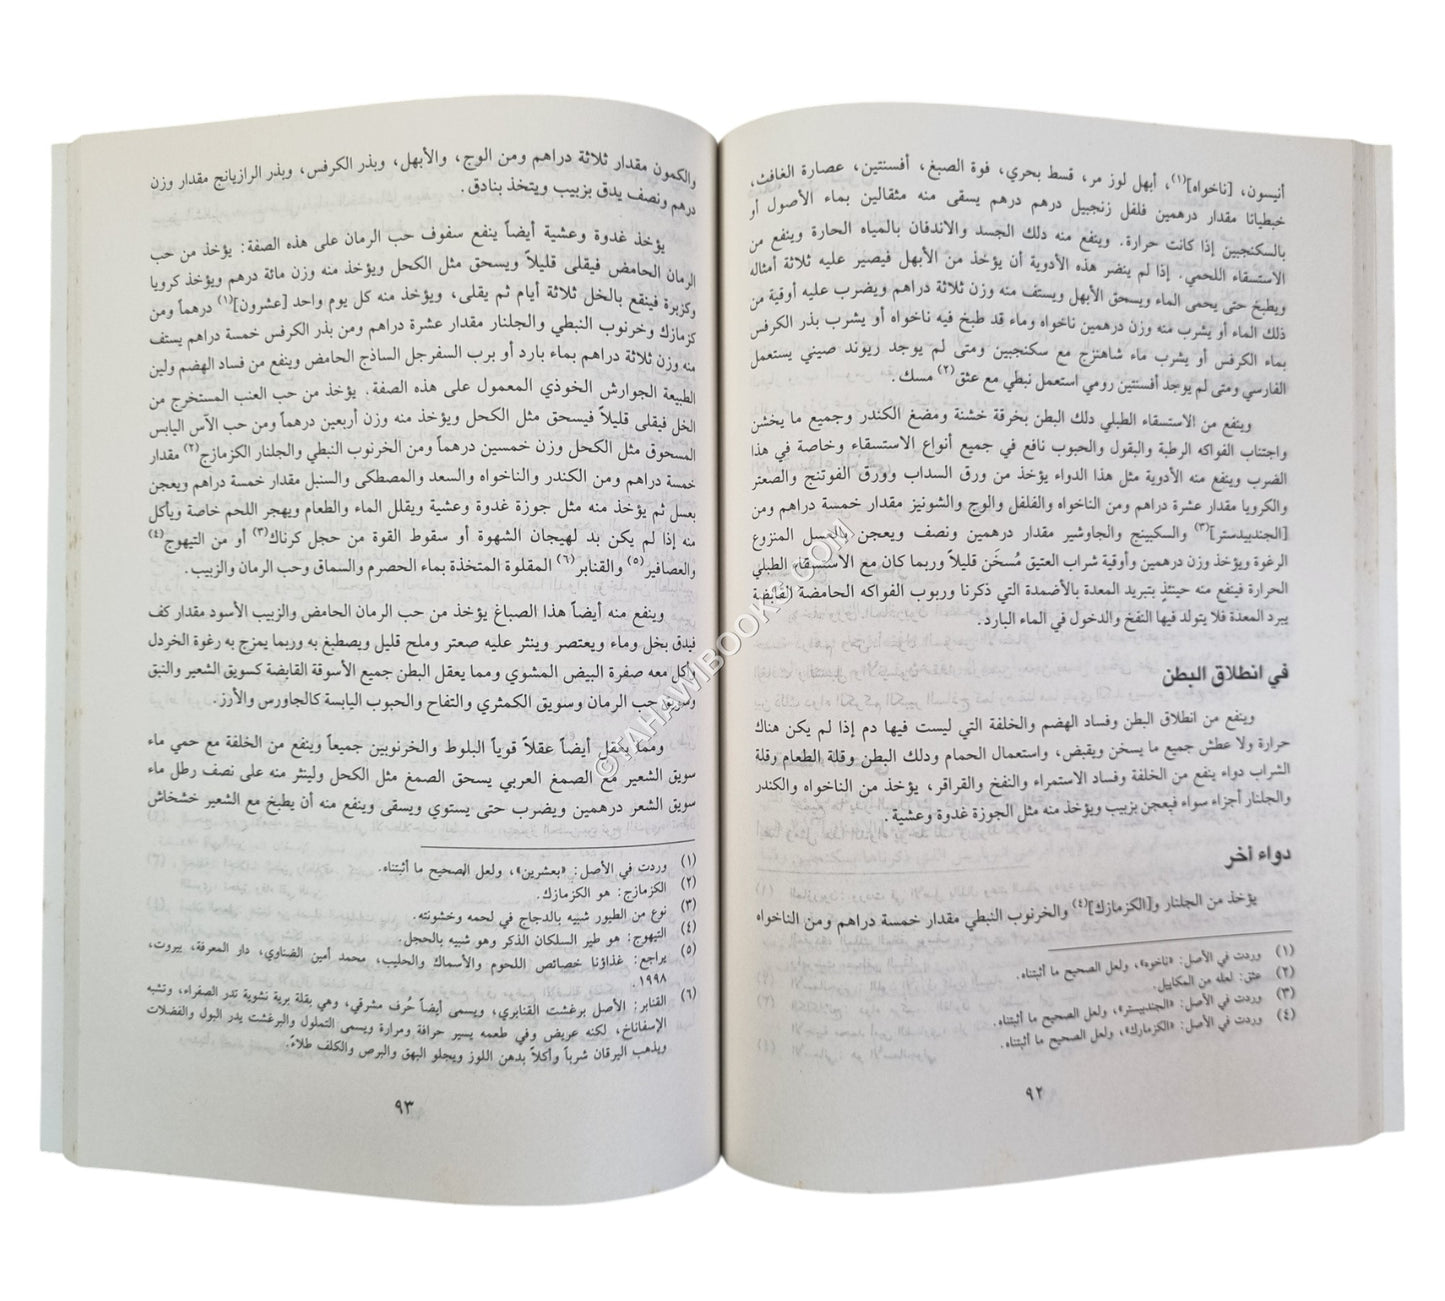 أنيسون، [ناخواه](١)، أبهل لوز مر، قسط بحري، فوة الصبغ، أفسنتين، عصارة الغافث،
خبطيانا مقدار درهمين فلفل زنجبيل درهم درهم يسقى منه مثقالين بماء الأصول أو
بالسكنجبين إذا كانت حرارة. وينفع منه دلك الجسد والاندفان بالمياه الحارة وينفع من
الاستسقاء اللحمي. إذا لم ينضر هذه الأدوية أن يؤخذ من الأبهل فيصير عليه ثلاثة أمثاله
ويطبخ حتى يحمى الماء ويسحق الأبهل ويستف منه وزن ثلاثة دراهم ويضرب عليه أوقية من
ذلك الماء أو يشرب منه وزن درهمين ناخواه وماء قد طبخ فيه ناخواه أو يشرب بذر الكرفس
بماء الكرفس أو يشرب ماء شاهترج مع سكنجبين ومتى لم يوجد ريوند صيني يستعمل
الفارسي ومتى لم يوجد أفسنتين رومي استعمل نبطي مع عثق(٢) مسك.
وينفع من الاستسقاء الطبلي دلك البطن بخرقة خشنة ومضغ الكندر وجميع ما يخشن
واجتناب الفواكه الرطبة والبقول والحبوب نافع في جميع أنواع الاستسقاء وخاصة في هذا
الضرب وينفع منه الأدوية مثل هذا الدواء يؤخذ من ورق السداب وورق الفوتنج والصعتر
والكرويا مقدار عشرة دراهم ومن الناخواه والفلفل والوج والشونيز مقدار خمسة دراهم ومن
[الجندبيدستر](٣) والسكبينج والجاوشير مقدار درهمين ونصف ويعجن بالعسل المنزوع
الرغوة ويؤخذ وزن درهمين وأوقية شراب العتيق مُسخَن قليلاً وربما كان مع الاستسقاء الطبلي
الحرارة فينفع منه حينئذ بتبريد المعدة بالأضمدة التي ذكرنا وربوب الفواكه الحامضة القابضة
يبرد المعدة فلا يتولد فيها النفخ والدخول في الماء البارد.
في انطلاق البطن
وينفع من انطلاق البطن وفساد الهضم والخلفة التي ليست فيها دم إذا لم يكن هناك
حرارة ولا عطش جميع ما يسخن ويقبض، واستعمال الحمام ودلك البطن وقلة الطعام وقلة
الشراب دواء ينفع من الخلفة وفساد الاستمراء والنفخ والقراقر، يؤخذ من الناخواه والكندر
والجلنار أجزاء سواء فيعجن بزبيب ويؤخذ منه مثل الجوزة غدوة وعشية.
دواء آخر
يؤخذ من الجلنار و[الكزمازك](٤) والخرنوب النبطي مقدار خمسة دراهم ومن الناخواه
(١) وردت في الأصل: «ناخوه»، ولعل الصحيح ما أثبتناه.
(٢) عثق: لعله من المكاييل.
(٣) وردت في الأصل: «الجندبيستر»، ولعل الصحيح ما أثبتناه.
(٤) وردت في الأصل: «الكزمارك»، ولعل الصحيح ما أثبتناه.
٩٢
والكمون مقدار ثلاثة دراهم ومن الوج، والأبهل، وبذر الكرفس، وبذر الرازيانج مقدار وزن
درهم ونصف يدق بزبيب ويتخذ بنادق.
يؤخذ غدوة وعشية أيضاً ينفع سفوف حب الرمان على هذه الصفة: يؤخذ من حب
الرمان الحامض فيقلى قليلاً ويسحق مثل الكحل ويؤخذ منه وزن مائة درهم ويؤخذ كرويا
وكزبرة فينقع بالخل ثلاثة أيام ثم يقلى، ويؤخذ منه كل يوم واحد [عشرون](١) درهماً ومن
كزمازك وخرنوب النبطي والجلنار مقدار عشرة دراهم ومن بذر الكرفس خمسة دراهم يستف
منه وزن ثلاثة دراهم بماء بارد أو برب السفرجل الساذج الحامض وينفع من فساد الهضم ولين
الطبيعة الجوارش الخوذي المعمول على هذه الصفة. يؤخذ من حب العنب المستخرج من
الخل فيقلى قليلاً فيسحق مثل الكحل ويؤخذ منه وزن أربعين درهماً ومن حب الآس اليابس
المسحوق مثل الكحل وزن خمسين درهماً ومن الخرنوب النبطي والجلنار الكزمازج(٢) مقدار
خمسة دراهم ومن الكندر والناخواه والسعد والمصطكى والسنبل مقدار خمسة دراهم ويعجن
بعسل ثم يؤخذ منه مثل جوزة غدوة وعشية ويقلل الماء والطعام ويهجر اللحم خاصة ويأكل
منه إذا لم يكن بد لهيجان الشهوة أو سقوط القوة من حجل كرناك(٣) أو من التيهوج(٤)
والعصافير(٥) والقنابر(٦) المقلوة المتخذة بماء الحصرم والسماق وحب الرمان والزبيب.
وينفع منه أيضاً هذا الصباغ يؤخذ من حب الرمان الحامض والزبيب الأسود مقدار كف
فيدق بخل وماء ويعتصر وينثر عليه صعتر وملح قليل ويصطبغ به وربما يمزج به رغوة الخردل
وكل معه صفرة البيض المشوي ومما يعقل البطن جميع الأسوقة القابضة كسويق الشعير والنبق
وسويق حب الرمان وسويق الكمثري والتفاح والحبوب اليابسة كالجاورس والأرز.
ومما يعقل أيضاً عقلاً قوياً البلوط والخرنوبين جميعاً وينفع من الخلفة مع حمي ماء
سويق الشعير مع الصمغ العربي يسحق الصمغ مثل الكحل ولينثر منه على نصف رطل ماء
سويق الشعر درهمين ويضرب حتى يستوي ويسقى وينفع منه أن يطبخ مع الشعير خشخاش
(١) وردت في الأصل: «بعشرين»، ولعل الصحيح ما أثبتناه.
(٢) الكزمازج: هو الكزمازك.
(٣) نوع من الطيور شبيه بالدجاج في لحمه وخشونته.
(٤) التيهوج: هو طير السلكان الذكر وهو شبيه بالحجل.
(٥) يراجع: غذاؤنا خصائص اللحوم والأسماك والحليب، محمد أمين الضناوي، دار المعرفة، بيروت،
١٩٩٨.
(٦) القنابر: الأصل برغشت القنابري، ويسمى أيضاً حُرف مشرقي، وهي بقلة برية نشوية تدر الصفراء، وتشبه
الإسفاناخ، لكنه عريض وفي طعمه يسير حرافة ومرارة ويسمى التملول والبرغشت يدر البول والفضلات
ويذهب اليرقان شرباً وأكلاً بدهن اللوز ويجلو البهق والبرص والكلف طلاءً.
٩٣
©TAHAWIBOOKS.COM